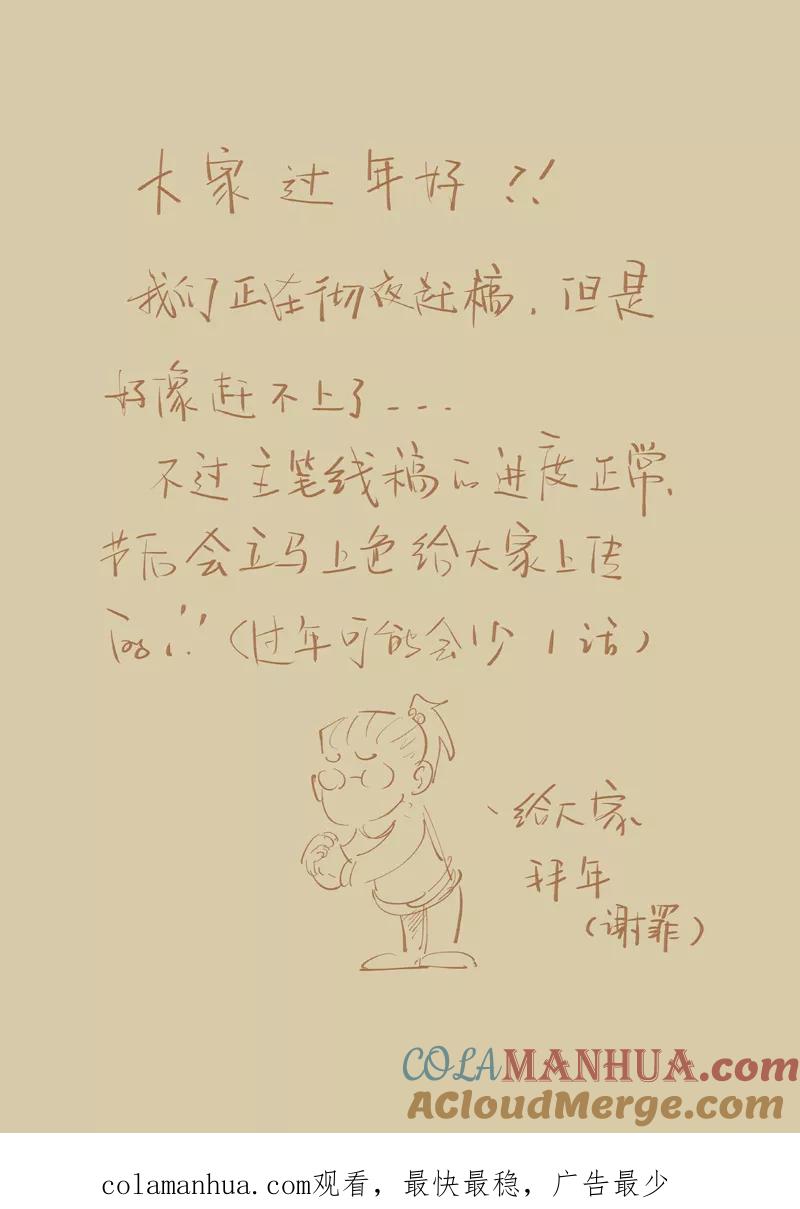 大家过年好!!
我们正在彻夜赶稿,但是
好像赶不上了---
不过主笔线稿的进度正常,
节后会立马上色给大家上传
的!!(过年可能会少1话)
、给大家
拜年
(谢罪)
COLAMANHUA.com
ACloudMerge.com
colamanhua.com观看，最快最稳，广告最少